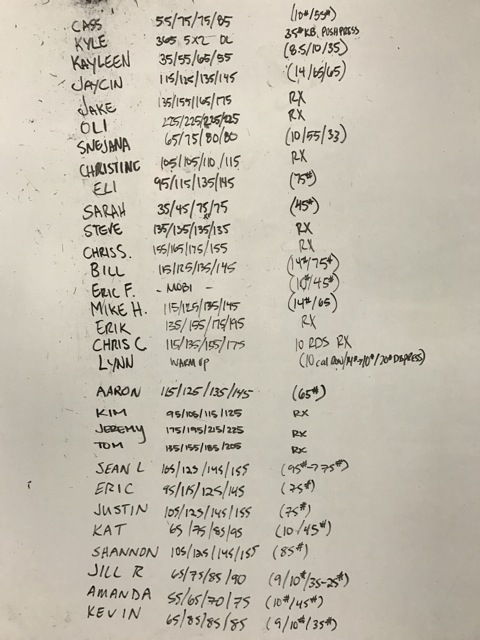 CASS 55/75/75/85 (10#/55#)
KYLE 365 5x2 DL 35# KB, PUSH PRESS
KAYLEEN 35/55/65/55 (8.5/10/35)
JAYCIN 115/125/135/145 (14/65/65)
JAKE 135/155/165/175 RX
OLI 225/225/225/225 RX
SNEJANA 65/75/80/80 (10/55/33)
CHRISTINE 105/105/110/115 RX
ELI 95/115/135/145 (75#)
SARAH 35/45/75/75 (45#)
STEVE 135/135/135/135 RX
CHRIS S. 155/165/175/155 RX
BILL 115/125/135/145 (14#/75#)
ERIC F. - MOBI - (10#/45#)
MIKE H. 115/125/135/145 (14#/65)
ERIK 135/155/175/195 RX
CHRIS C 115/135/155/175 10 RDS RX
LYNN WARM UP (10 cal ROW/
AARON 115/125/135/145 (65#)
KIM 95/105/115/125 RX
JEREMY 175/195/215/225 RX
TOM 135/155/185/205 RX
SEAN L 105/125/145/155 (95#→75#)
ERIC 95/115/125/145 (75#)
JUSTIN 105/125/145/155 (75#)
KAT 65/75/85/95 (10/45#)
SHANNON 105/125/145/155 (85#)
JILL R 65/75/85/90 (9/10#/35-25#)
AMANDA 55/65/70/75 (10#/45#)
KEVIN 65/85/85/85 (9/10#/35#)